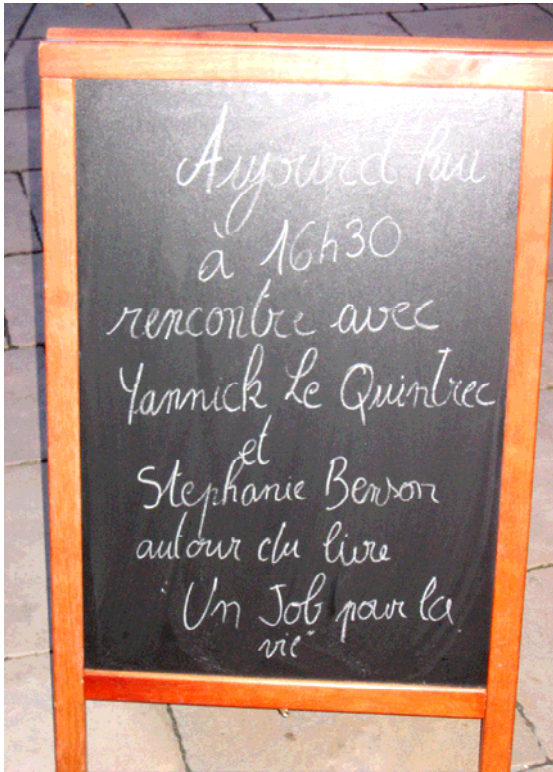 Aujourd hui
à 16h30
rencontre avec
Yannick Le Quintrec
et
Stephanie Benson
autour du livre
"Un Job pour la
vie"